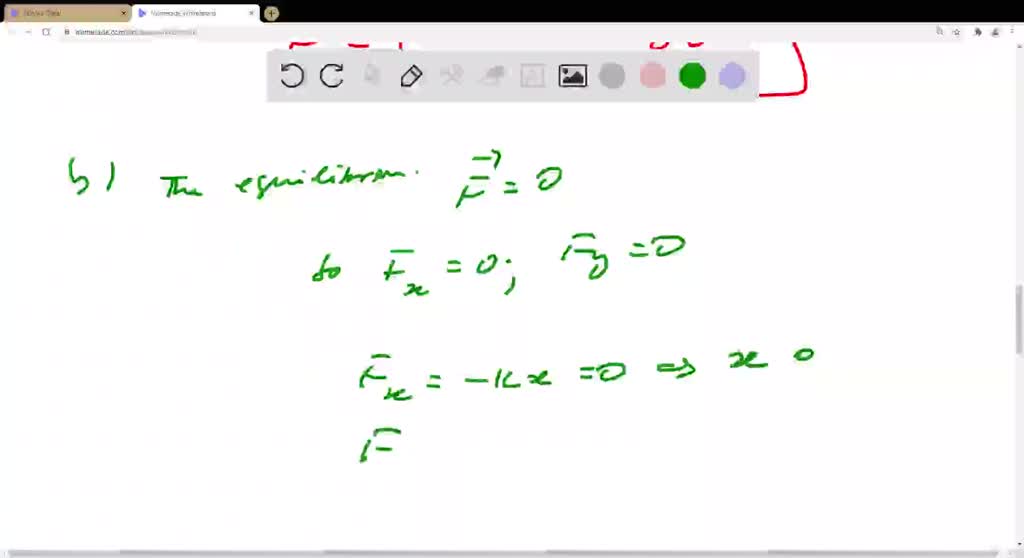 b) The equilibrium. F⃗ = 0
so Fx = 0; Fy = 0
Fx = -kx = 0 ⇒ x 0
F